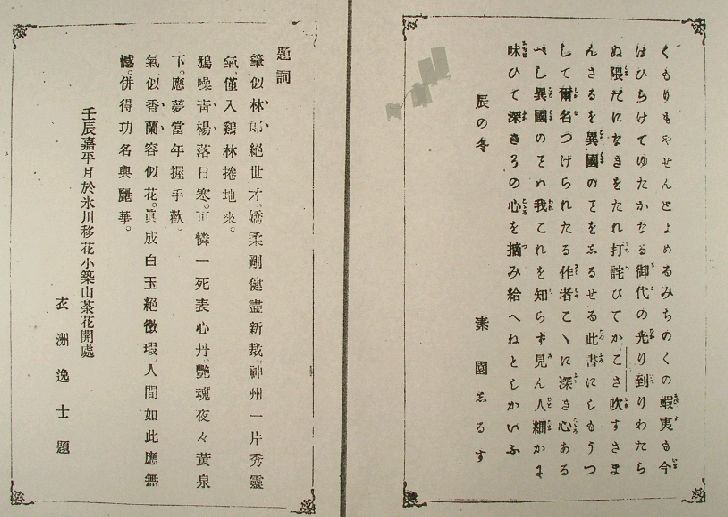 くもりもやせんとよめるみちのくの蝦夷も今
はひらけてゆたかなる御代の光り到りわたら
ぬ隈だになきをたれ打詫びてかこさ吹すさま
んさるを異國のてをゑるせる此書にしもうつ
して爾名つげられたる作者こゝに深き心ある
べし異國のそれ我これを知らず見ん人細かに
味ひて深きろの心を摘み給へねとしかいふ
辰の冬
素園ゑるす
題詞
筆似林郎絶世才。嬌柔剛健盡新裁。神州一片秀靈
氣。僅入鷄林捲地來。
鴉噪青楊落日寒。可憐一死表心丹。艶魂夜々黄泉
下。應夢當年握手歡。
氣似香蘭容似花。眞成白玉絕微瑕。人間如此應無
憾。併得功名與麗華。
壬辰嘉平月於氷川移花小築山茶花開處
衣洲逸士題